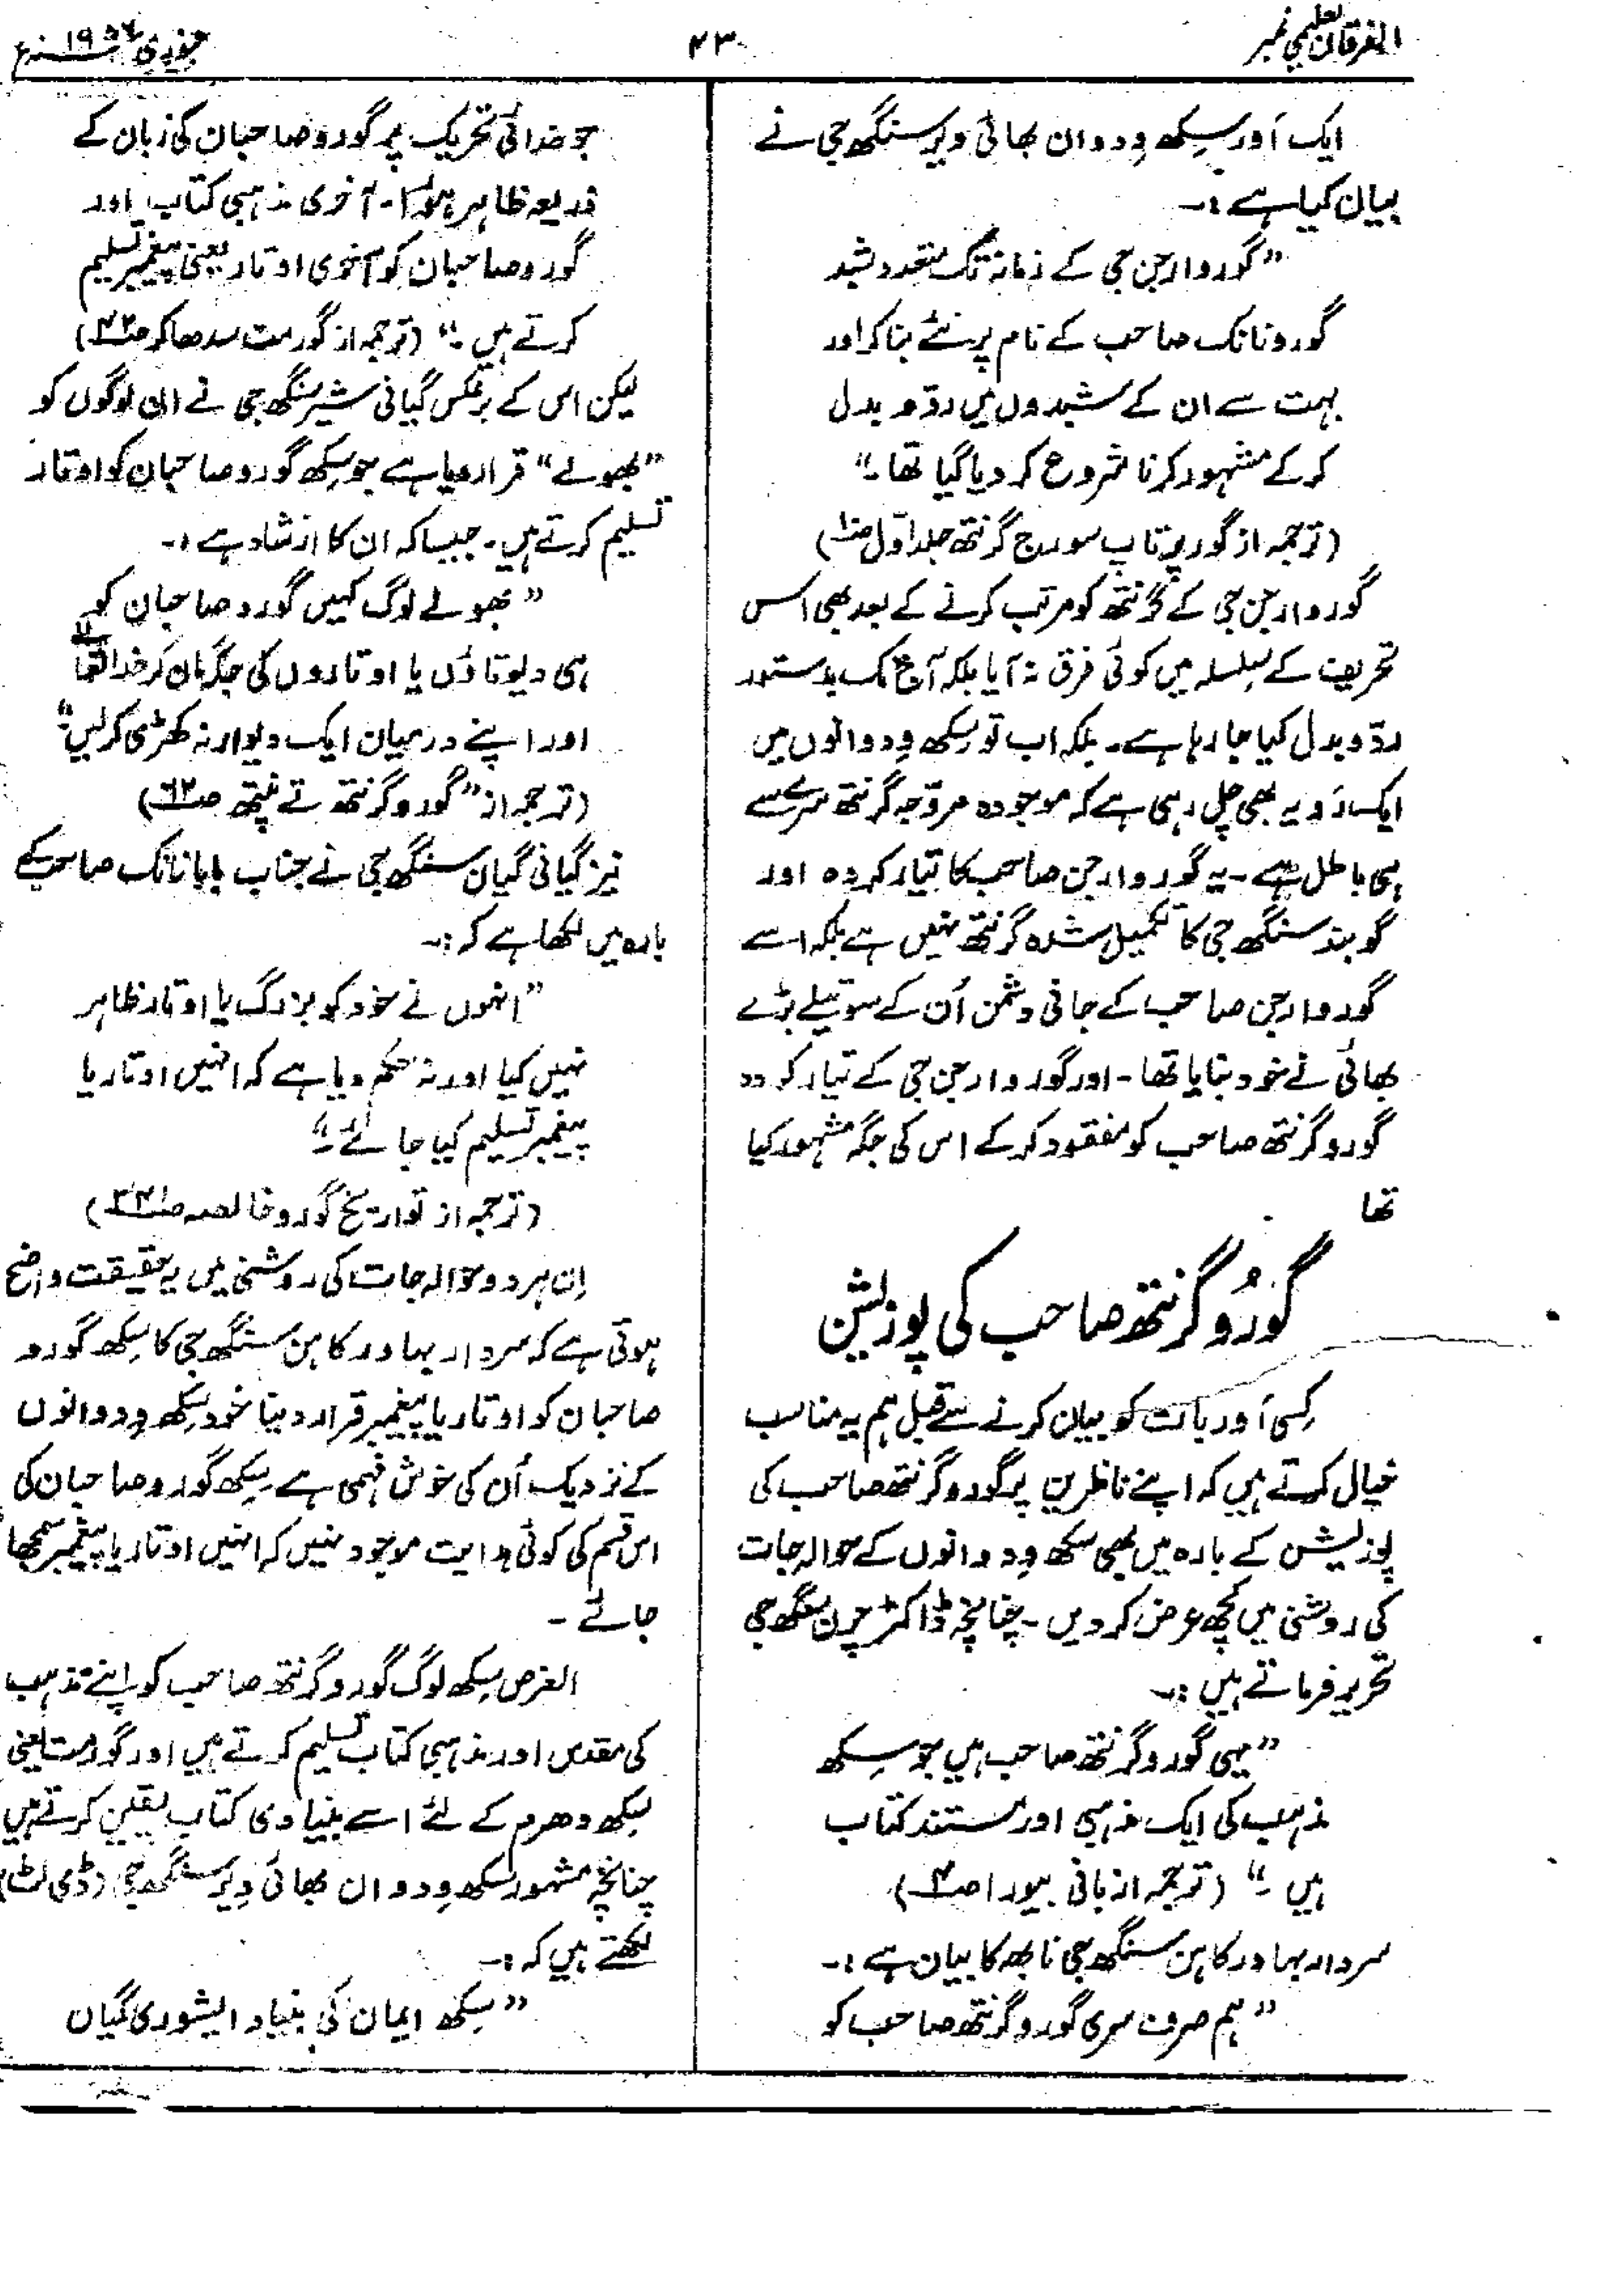 الفرقان تعلیمی نمبر
۲۳
جنوری ۱۹۵۴ء
ایک اَور سِکھ وِدوان بھائی ویر سنگھ جی نے
بیان کیا ہے :۔
”گورو ارجن جی کے زمانہ تک متعدد شبد
گورونانک صاحب کے نام پر نئے بنا کر اور
بہت سے ان کے شبدوں میں ردّ و بدل
کر کے مشہور کرنا شروع کر دیا گیا تھا۔“
(ترجمہ از گور پرتاپ سورج گرنتھ جلد اوّل)
گورو ارجن جی کے گرنتھ کو مرتب کرنے کے بعد بھی اس
تحریف کے سلسلہ میں کوئی فرق نہ آیا بلکہ آج تک بدستور
ردّ و بدل کیا جا رہا ہے۔ بلکہ اب تو سکھ وِدوانوں میں
ایک رَو یہ بھی چل رہی ہے کہ موجودہ مروّجہ گرنتھ سرے سے
ہی باطل ہے۔ یہ گورو ارجن صاحب کا تیار کردہ اور
گوبند سنگھ جی کا تکمیل شدہ گرنتھ نہیں ہے بلکہ اسے
گورو ارجن صاحب کے جانی دشمن اُن کے سوتیلے بڑے
بھائی نے خود بنایا تھا۔ اور گورو ارجن جی کے تیار کردہ
گورو گرنتھ صاحب کو مفقود کر کے اس کی جگہ مشہور کیا
تھا
گورُو گرنتھ صاحب کی پوزیشن
کِسی اَور بات کو بیان کرنے سے قبل ہم یہ مناسب
خیال کرتے ہیں کہ اپنے ناظرین پر گورو گرنتھ صاحب کی
پوزیشن کے بارہ میں بھی سکھ وِدوانوں کے حوالہ جات
کی روشنی میں کچھ عرض کر دیں۔ چنانچہ ڈاکٹر چرن سنگھ جی
تحریر فرماتے ہیں :۔
”یہی گورو گرنتھ صاحب ہیں جو سِکھ
مذہب کی ایک مذہبی اور مستند کتاب
ہیں۔“ (ترجمہ از بانی بیورا)
سردار بہادر کاہن سنگھ جی نابھہ کا بیان ہے :۔
”ہم صرف سری گورو گرنتھ صاحب کو
جو خدائی تحریک پر گورو صاحبان کی زبان کے
ذریعہ ظاہر ہؤا۔ آخری مذہبی کتاب اور
گورو صاحبان کو آخری اوتار یعنی پیغمبر تسلیم
کرتے ہیں۔“ (ترجمہ از گورمت سدھاکر)
لیکن اس کے برعکس گیانی شیر سنگھ جی نے ان لوگوں کو
”بھولے“ قرار دیا ہے جو سکھ گورو صاحبان کو اوتار
تسلیم کرتے ہیں۔ جیسا کہ ان کا ارشاد ہے :۔
”بھولے لوگ کہیں گورو صاحبان کو
ہی دیوتاؤں یا اوتاروں کی جگہ مان کر خدا تعالیٰ
اور اپنے درمیان ایک دیوار نہ کھڑی کر لیں“
(ترجمہ از ”گورو گرنتھ تے پنتھ ص ۶۲)
نیز گیانی گیان سنگھ جی نے جناب بابا نانک صاحب کے
بارہ میں لکھا ہے کہ :۔
”انہوں نے خود کو بزرگ یا اوتار ظاہر
نہیں کیا اور نہ حکم دیا ہے کہ انہیں اوتار یا
پیغمبر تسلیم کیا جائے۔“
(ترجمہ از تواریخ گورو خالصہ)
اِن ہر دو حوالہ جات کی روشنی میں یہ حقیقت واضح
ہوتی ہے کہ سردار بہادر کاہن سنگھ جی کا سِکھ گورو
صاحبان کو اوتار یا پیغمبر قرار دینا خود سِکھ وِدوانوں
کے نزدیک اُن کی خوش فہمی ہے سِکھ گورو صاحبان کی
اس قسم کی کوئی ہدایت موجود نہیں کہ انہیں اوتار یا پیغمبر سمجھا
جائے۔
الغرض سِکھ لوگ گورو گرنتھ صاحب کو اپنے مذہب
کی مقدس اور مذہبی کتاب تسلیم کرتے ہیں اور گورمت یعنی
سِکھ دھرم کے لئے اسے بنیادی کتاب یقین کرتے ہیں
چنانچہ مشہور سکھ وِدوان بھائی وِیر سنگھ جی (ڈی لٹ)
لکھتے ہیں کہ :۔
”سِکھ ایمان کی بنیاد ایشوری گیان